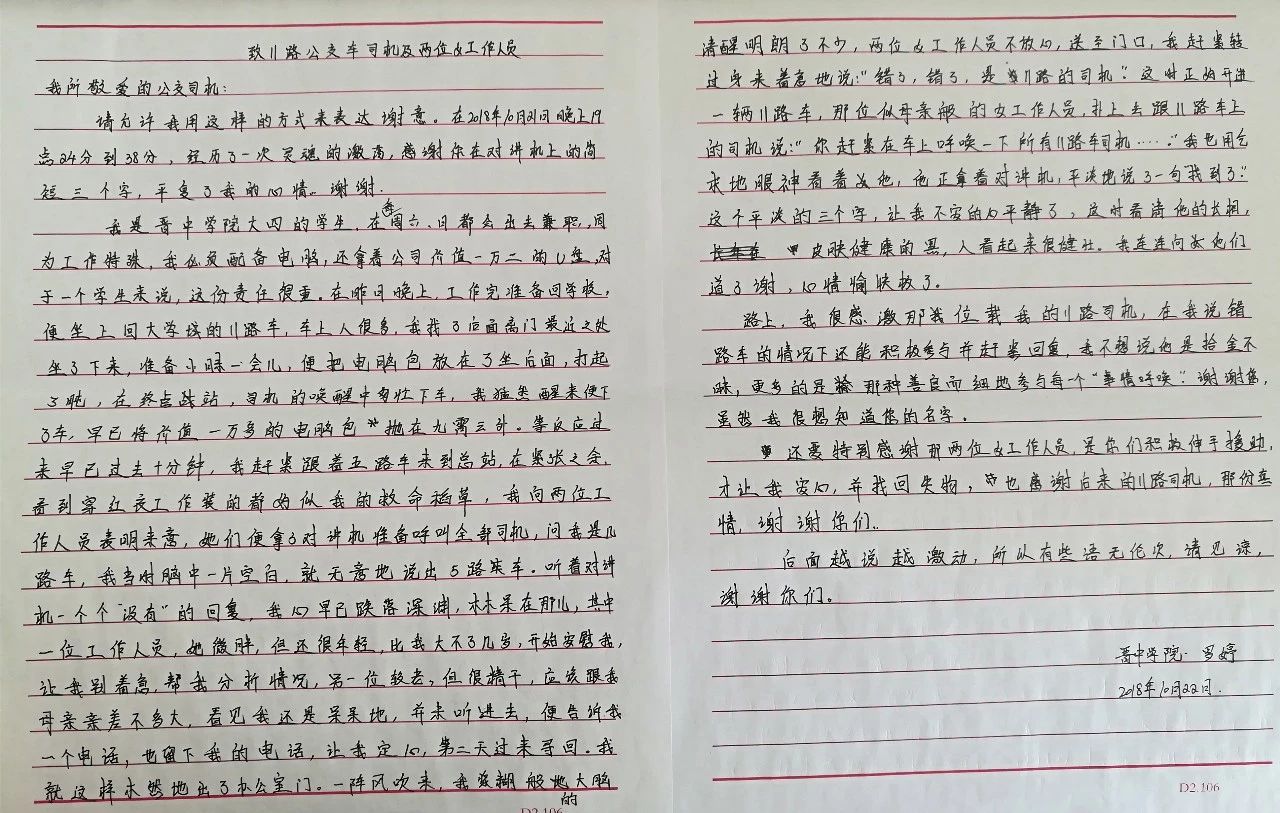 致11路公交车司机及两位女工作人员
我所敬爱的公交司机：
请允许我用这样的方式来表达谢意。在2018年10月21日晚上19
点24分到38分，经历了一次灵魂的激荡，感谢你在对讲机上的简
短三个字，平复了我的心情。谢谢.
我是晋中学院大四的学生，在每周六、日都会出去兼职，因
为工作特殊，我必须配备电脑，还拿着公司价值一万二的U盘，对
于一个学生来说，这份责任很重。在昨日晚上，工作完准备回学校，
便坐上回大学城的11路车，车上人很多，我找了后面离门最近之处
坐了下来，准备小眯一会儿，便把电脑包放在了坐后面，打起
了盹，在终点战站，司机的唤醒中匆忙下车，我猛然醒来便下
了车，早已将价值一万多的电脑包抛在九霄云外。等反应过
来早已过去十分钟，我赶紧跟着五路车来到总站，在紧张之余，
看到穿红衣工作装的都好似我的救命稻草，我向两位工
作人员表明来意，她们便拿了对讲机准备呼叫全部司机，问我是几
路车，我当时脑中一片空白，就无意地说出5路失车。听着对讲
机一个个"没有"的回复，我心早已跌落深渊，木木呆在那儿，其中
一位工作人员，她微胖，但还很年轻，比我大不了几岁，开始安慰我，
让我别着急，帮我分析情况，另一位较老，但很精干，应该跟我
母亲亲差不多大，看见我还是呆呆地，并未听进去，便告诉我
一个电话，也留下我的电话，让我定心，第二天过来寻回。我
就这样木然地出了办公室门。一阵风吹来，我浆糊般地大脑
的
D2.106
清醒明朗了不少，两位女工作人员不放心，送至门口，我赶紧转
过身来着急地说："错了，错了，是11路的司机"。这时正好开进
一辆11路车，那位似母亲般的女工作人员，扑上去跟11路车上
的司机说："你赶紧在车上呼唤一下所有11路车司机……"我也用乞
求地眼神看着他，他正拿着对讲机，平淡地说了一句"我到了："
这个平淡的三个字，让我不安的心平静了，这时看清他的长相，
皮肤健康的黑，人看起来很健壮。我连连向她他们
道了谢，心情愉快极了。
路上，我很感激那我位载我的11路司机，在我说错
路车的情况下还能积极参与并赶紧回复，我不想说你是拾金不
昧，更多的是那种善良而细地参与每一个"事情呼唤"。谢谢您，
虽然我很想知道您的名字.
还要特别感谢那两位女工作人员，是你们积极伸手援助，
才让我安心，并找回失物，也感谢后来的11路司机，那份真
情，谢谢你们。
后面越说越激动，所以有些语无伦次，请见谅，
谢谢你们。
晋中学院·罗婷
2018年10月22日.
D2.106